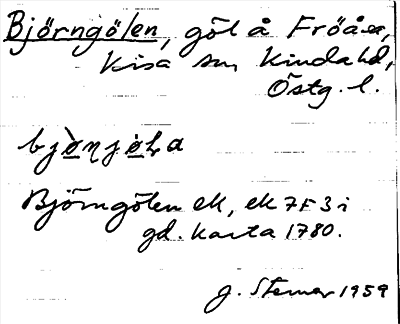 Björngölen, göl å Fröåsa,
Kisa sn, Kinda hd,
Östg. l.
bjònjøLa
Björngölen ek, ek 7F3i
gd. karta 1780.
J. Sterner 1959